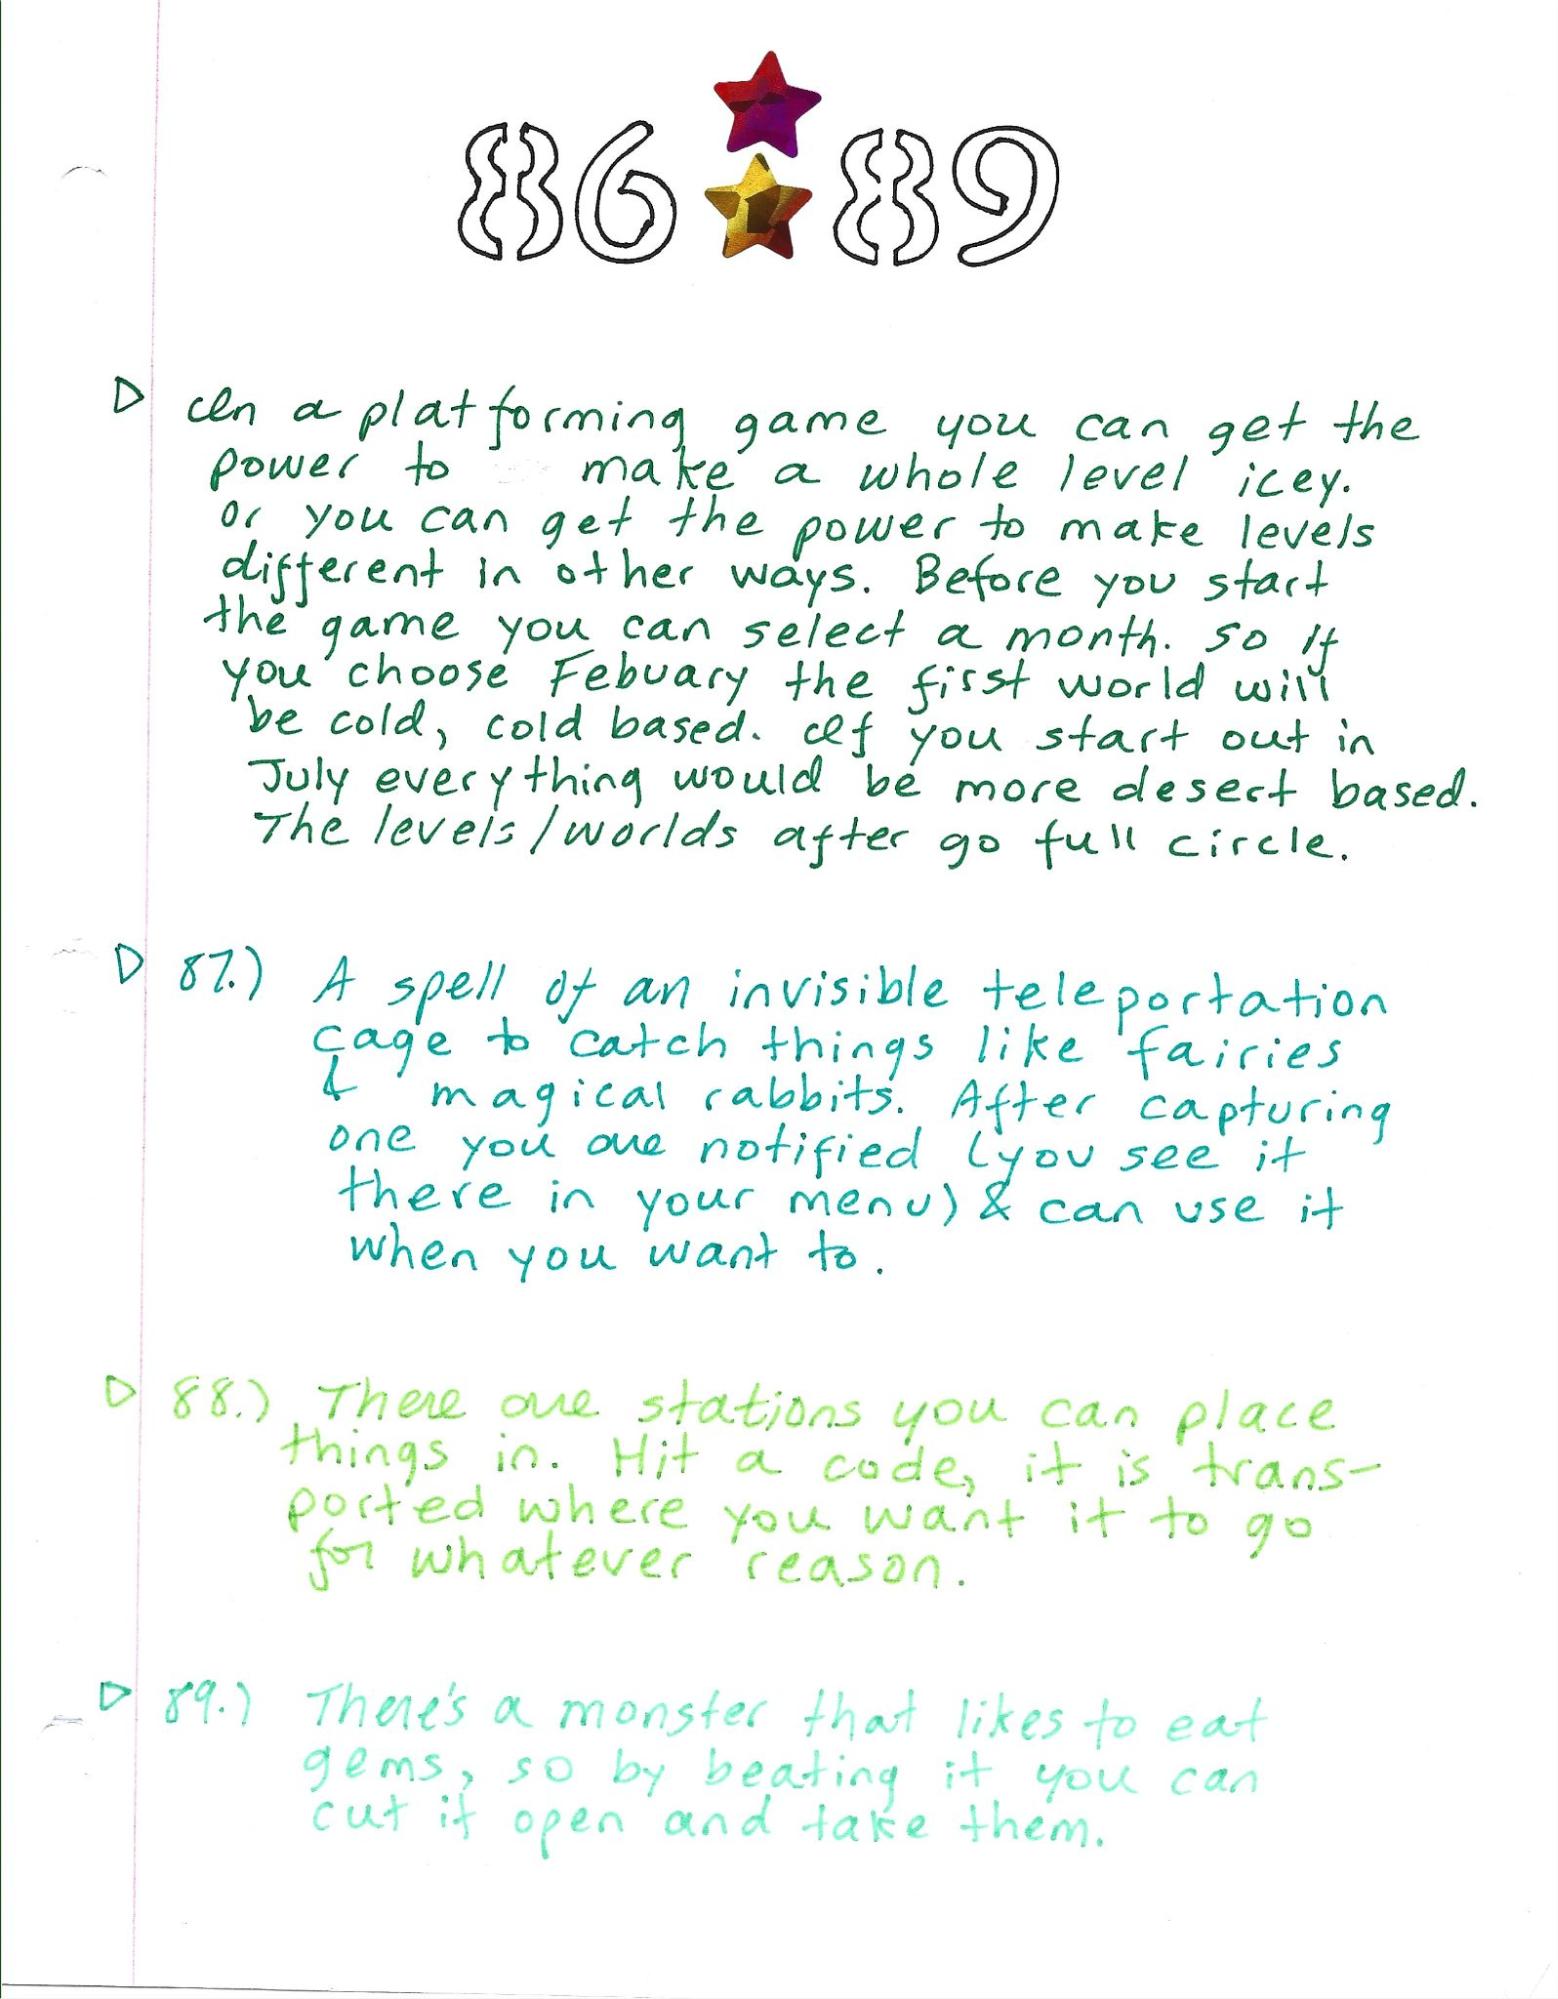 86 89
In a platforming game you can get the
power to make a whole level icey.
or you can get the power to make levels
different in other ways. Before you start
the game you can select a month. so if
you choose Febuary the first world will
be cold, cold based. If you start out in
July everything would be more desert based.
The levels/worlds after go full circle.
87.) A spell of an invisible teleportation
cage to catch things like fairies
& magical rabbits. After capturing
one you are notified (you see it
there in your menu) & can use it
when you want to.
88.) There are stations you can place
things in. Hit a code, it is trans-
ported where you want it to go
for whatever reason.
89.) There's a monster that likes to eat
gems, so by beating it you can
cut it open and take them.